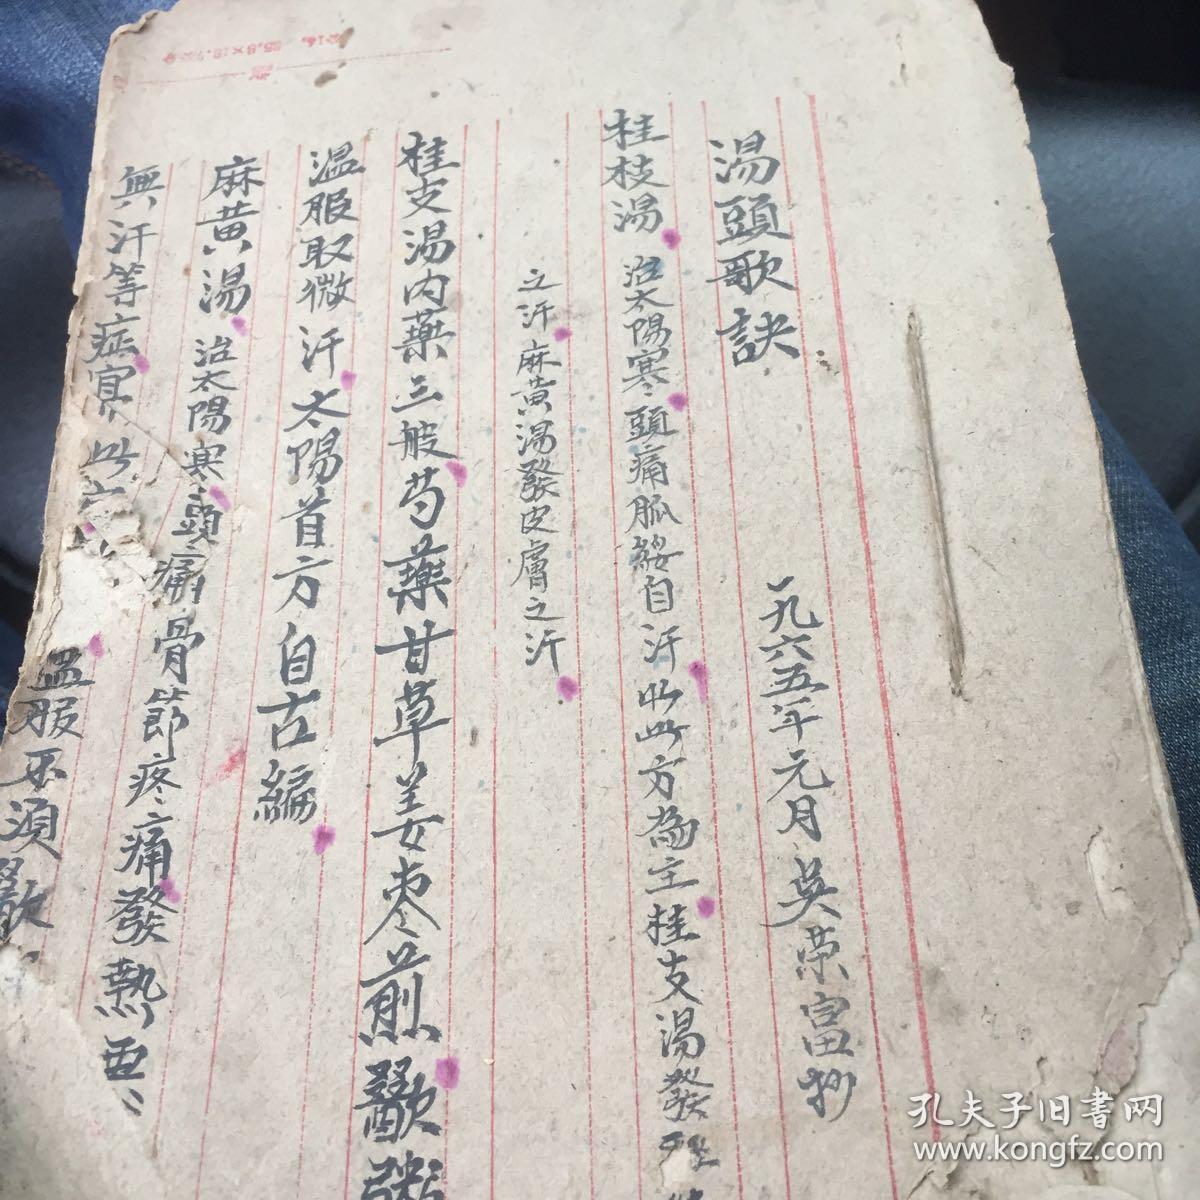 湯頭歌訣
一九六五年元月吳荣富抄
桂枝湯治太陽寒頭痛脈緩自汗此方為主桂支湯發
之汗麻黃湯發皮膚之汗
桂支湯内藥三般芍藥甘草姜枣煎歠粥
温服取微汗太陽首方自古編
麻黃湯治太陽寒頭痛骨節疼痛發熱惡
無汗等症宜此
温服不須歠
孔夫子旧書网
www.kongfz.com